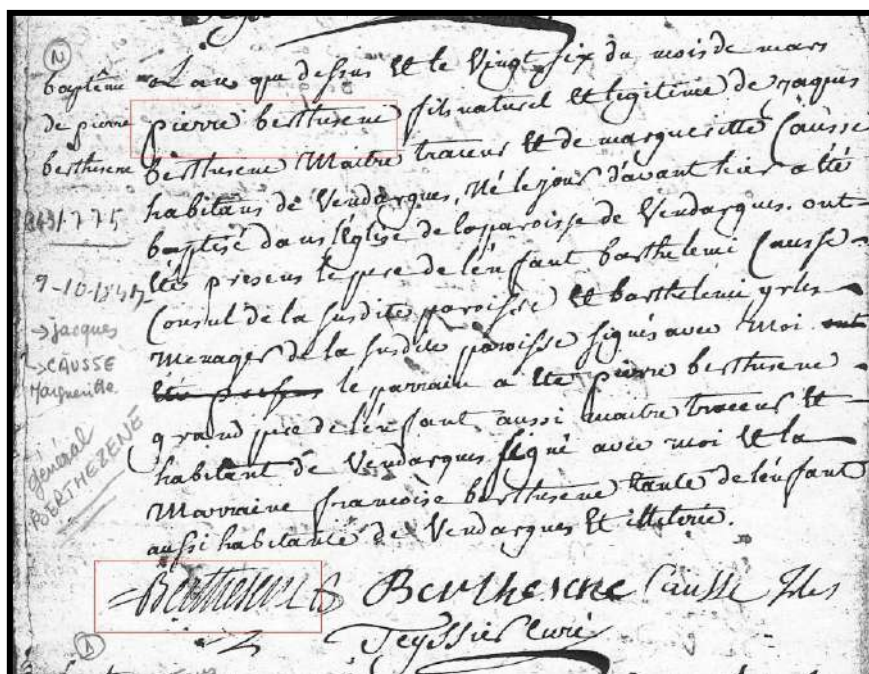 baptême
de pierre
berthesene
L'an que dessus Et le Vingt six du mois de mars
pierre berthesene fils naturel Et legitime de jaques
berthesene Maitre traceur Et de margueritte Causse
habitans de Vendargues, Né le jour d'avant hier a Eté
baptisé dans l'Eglise de la paroisse de Vendargues. ont
Etés presens le pere de l'enfant barthelemi Causse
Consul de la susdite paroisse Et barthelemi yrles
Menager de la susdite paroisse signés avec Moi ont
le parrain a Eté pierre berthesene
grand pere de l'enfant aussi maitre traceur Et
habitant de Vendargues signé avec moi Et la
Marraine francoise berthesene tante de l'enfant
aussi habitante de Vendargues Et illiterée.
Berthesene Berthesene Causse Irles
Teyssier Curé
N
1775
9-10-1847
→ jacques
→ CAUSSE
Marguerite
général
BERTHEZENE
1